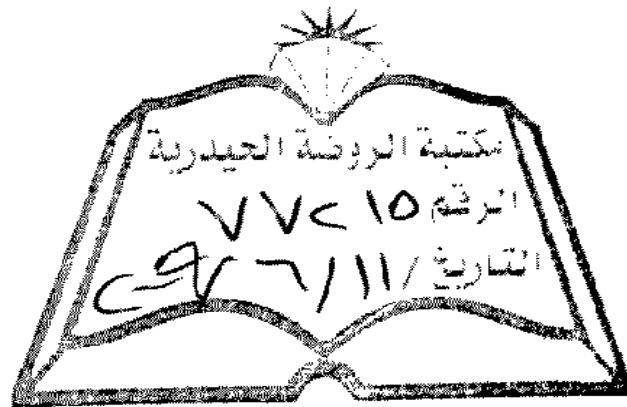 مكتبة الروضة الحيدرية
الرقم ٧٧٢١٥
التاريخ / ١١/٦/٢٠٠٩